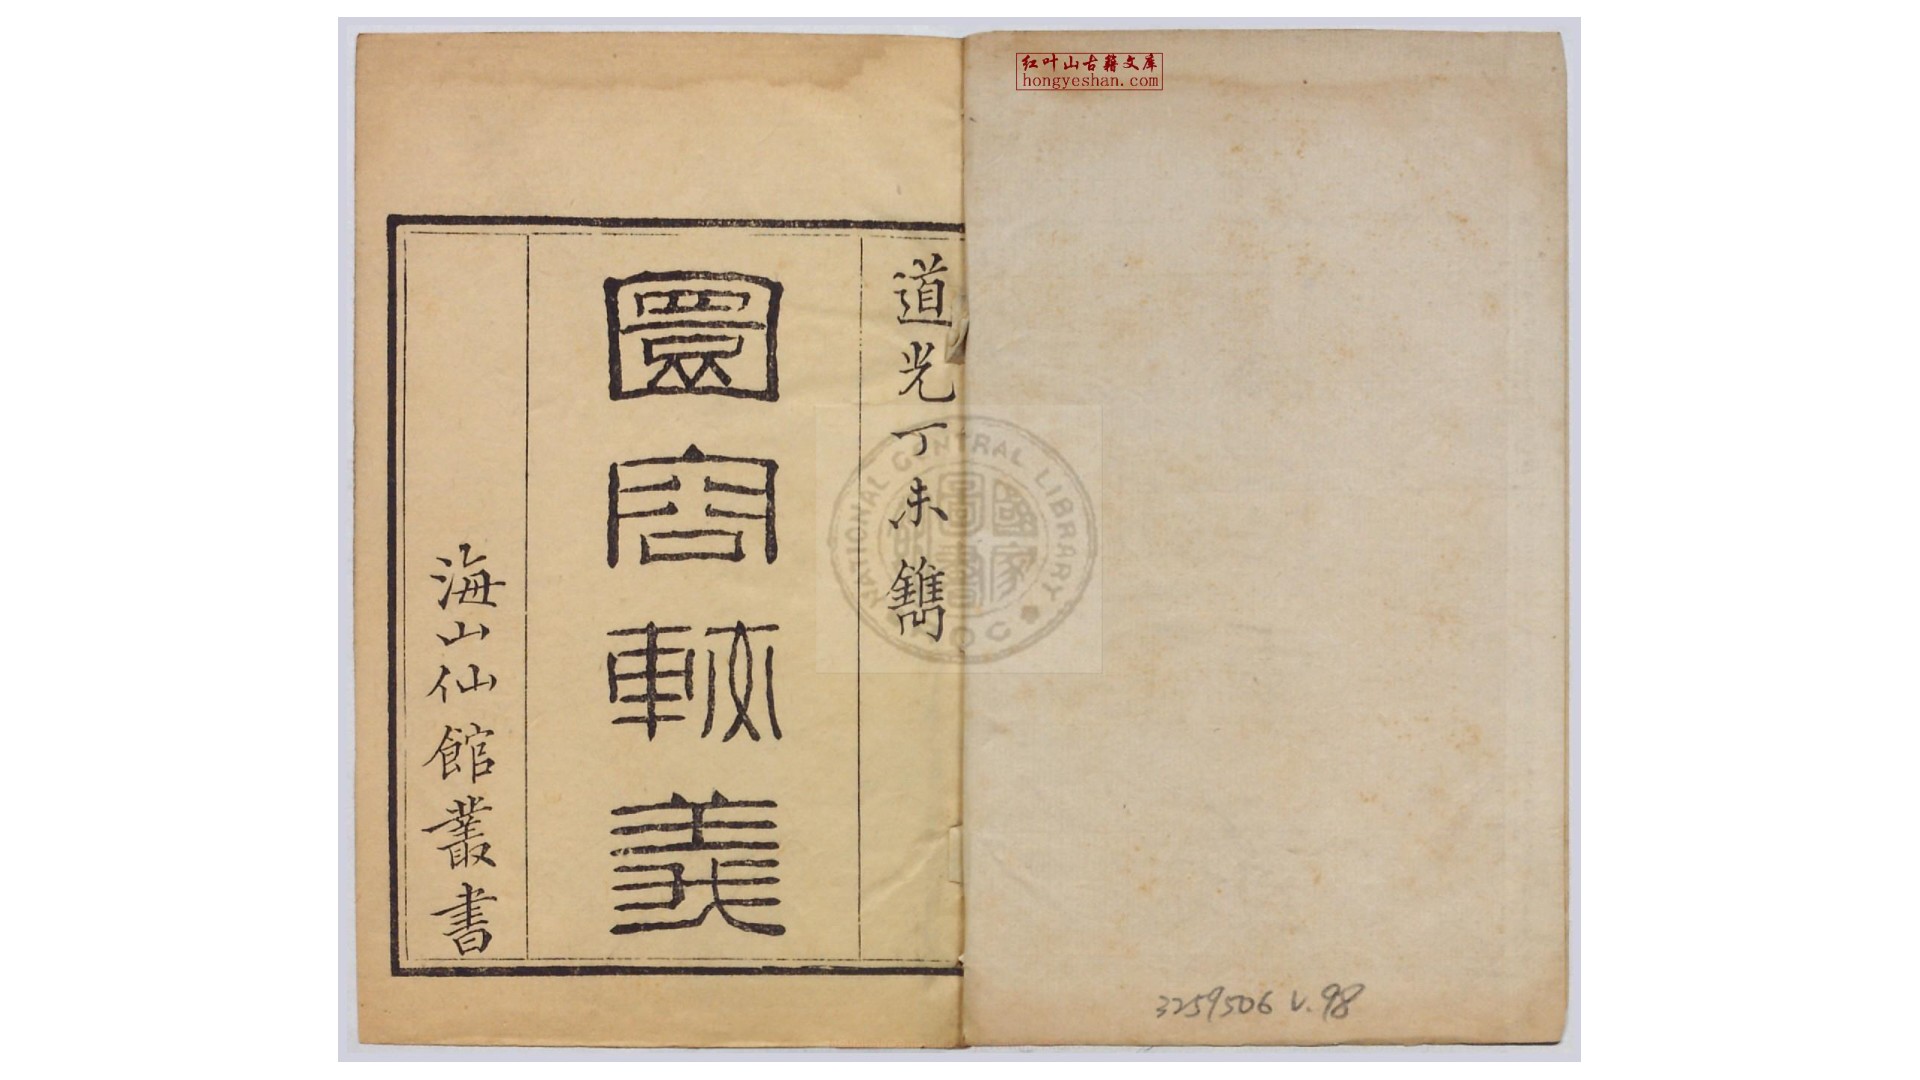 红叶山古籍文库
hongyeshan.com
道光丁未鐫
圜容較義
海山仙館叢書
NATIONAL CENTRAL LIBRARY
ROC
國家圖書館
3259506 v.98